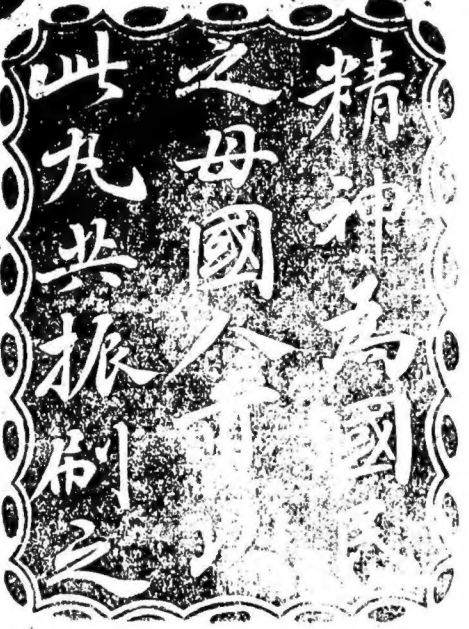 精神為國民
之母國人可以
此丸共振刷之